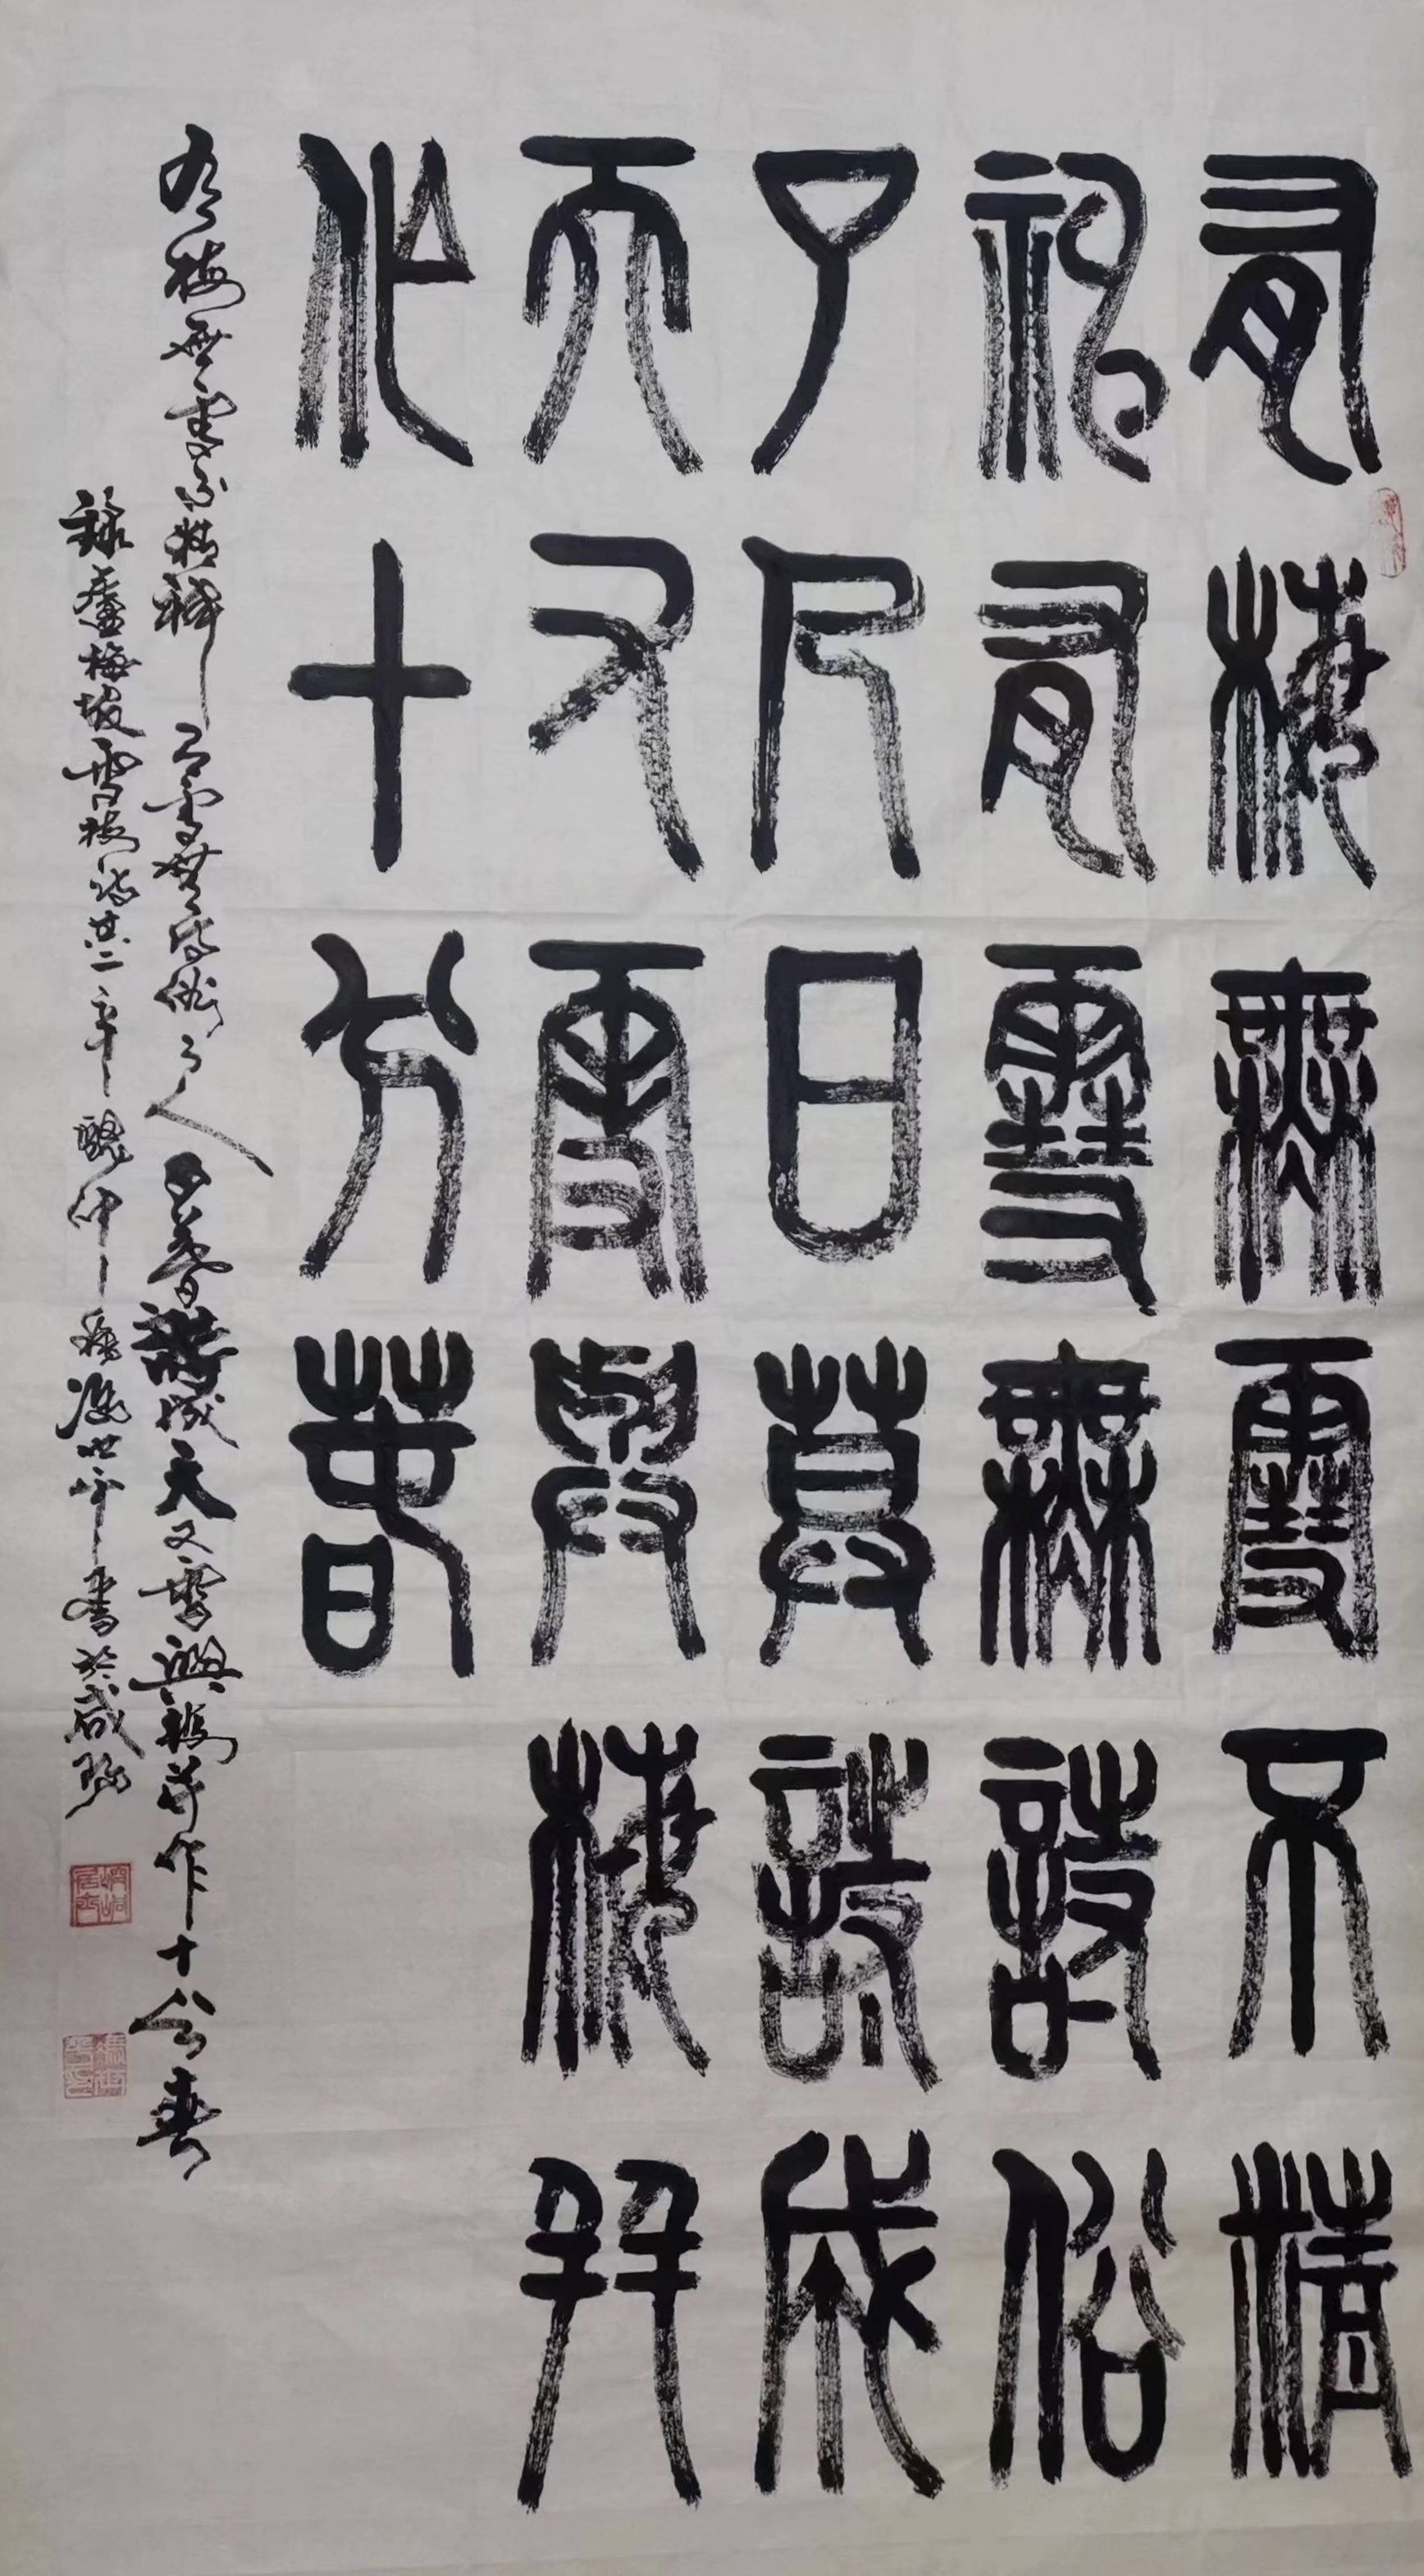 有梅無雪不精
神有雪無詩俗
了人日暮詩成
天又雪與梅并
作十分春
有梅無雪不精神有雪無詩俗了人日暮詩成天又雪與梅并作十分春
錄盧梅坡雪梅詩其二辛丑仲秋